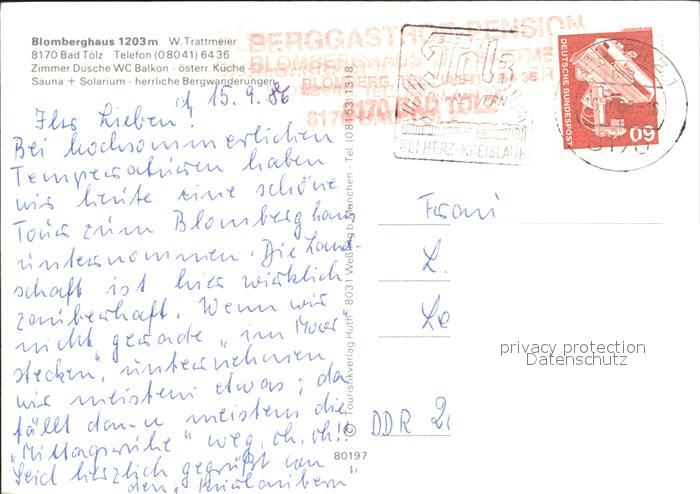 Blomberghaus 1203m W. Trattmeier
8170 Bad Tölz Telefon (08041) 6436
Zimmer Dusche WC Balkon - österr. Küche
Sauna + Solarium - herrliche Bergwanderungen
d 15.9.86
Ihr Lieben!
Bei hochsommerlichen
Temperaturen haben
wir heute eine schöne
Tour zum Blomberghaus
unternommen. Die Land-
schaft ist hier wirklich
zauberhaft. Wenn wir
nicht gerade "im Moor
stecken", unternehmen
wir meistens etwas; da
fällt dann meistens die
"Mittagsruhe" weg, oh, oh!!
Seid herzlich gegrüßt von
den
© Touristikverlag Huth · 8031 Weßling b. München · Tel (08153) 1318
80197
BERGGASTHOF-PENSION
BLOMBERGHAUS
8170 BAD TÖLZ
BEI HERZ-KREISLAUF
DEUTSCHE BUNDESPOST
60
Frau
L.
Le
DDR 2
privacy protection
Datenschutz